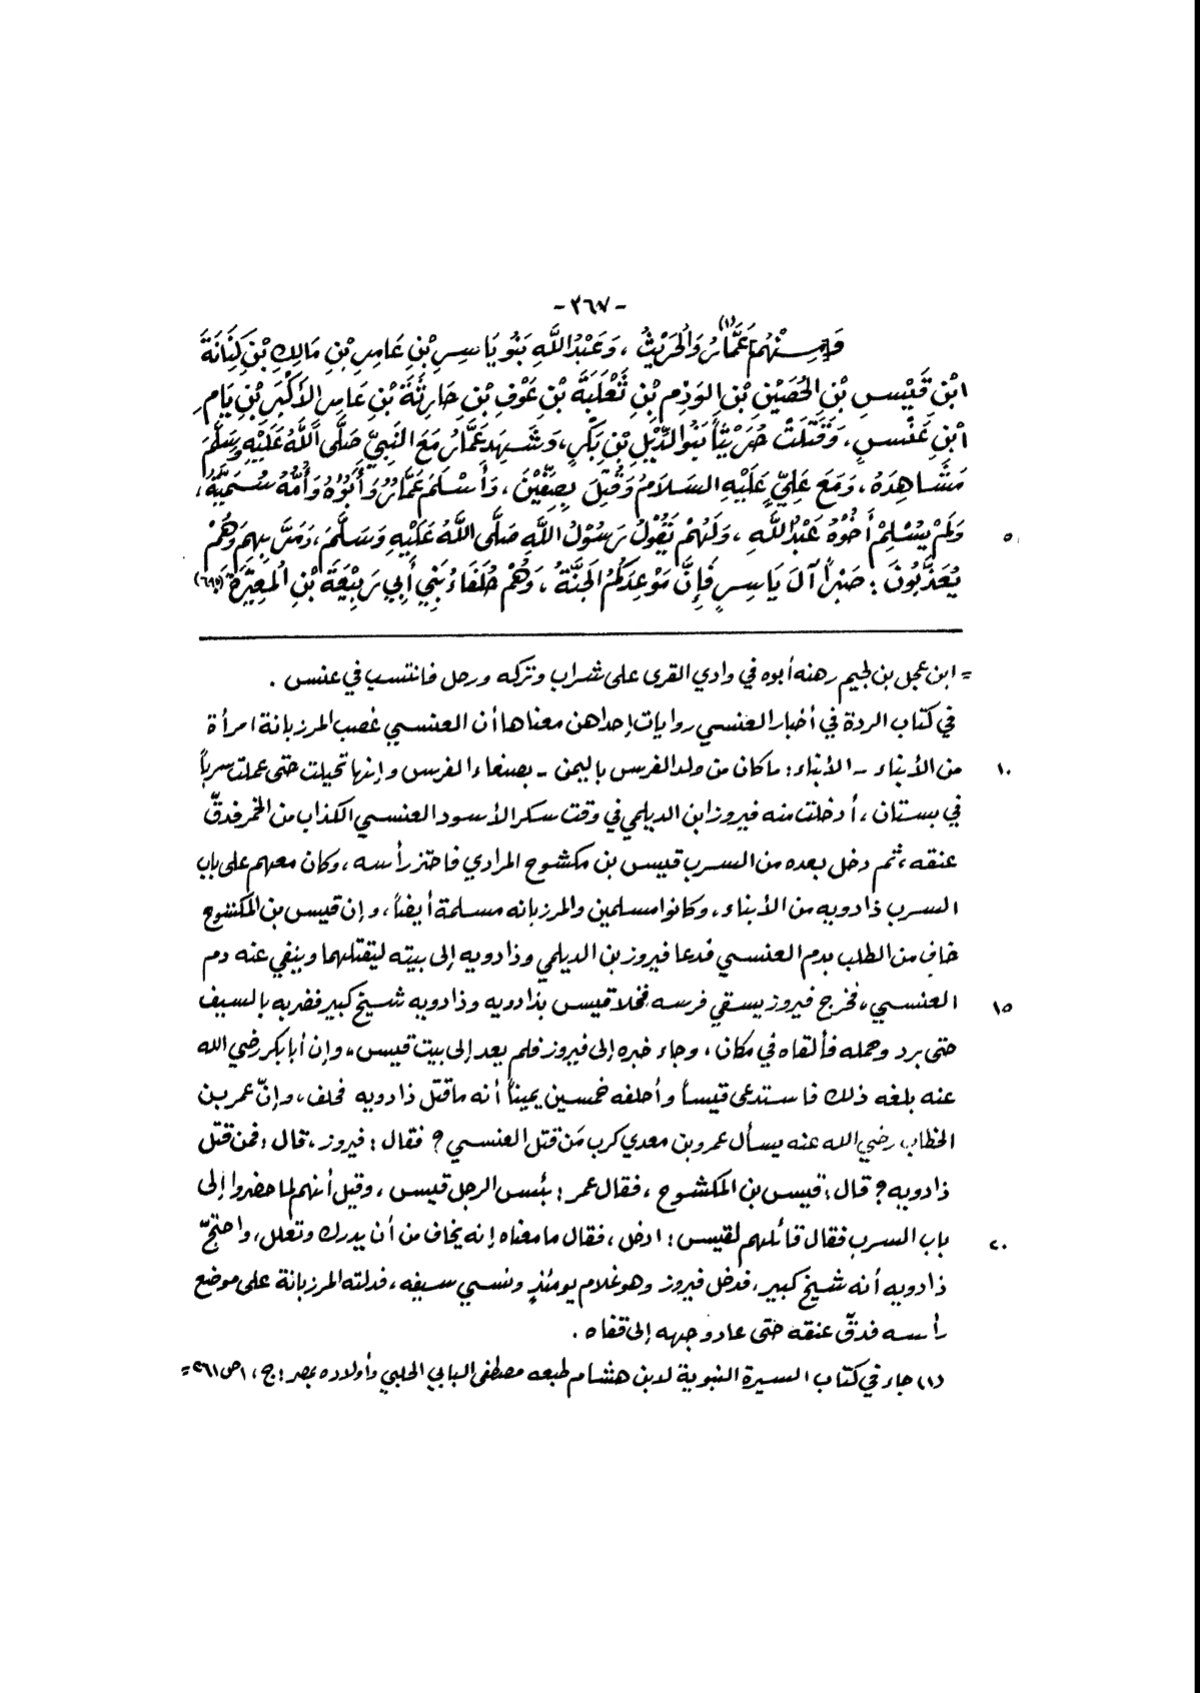 -٣٦٧-
وَمِنْهُم عَمَّارُ (١) وَالحُرَيْثُ ، وَعَبْدُ اللَّهِ بَنُو يَاسِرِ بْنِ عَامِرِ بْنِ مَالِكِ بْنِ كِنَانَةَ
ابْنِ قَيْسِ بْنِ الحُصَيْنِ بْنِ الوَذِمِ بْنِ ثَعْلَبَةَ بْنِ عَوْفِ بْنِ حَارِثَةَ بْنِ عَامِرِ الأَكْبَرِ بْنِ يَامِ
ابْنِ عَنْسٍ ، وَقَتَلَتْ حُرَيْثاً بَنُو الدِّيْلِ بْنِ بَكْرٍ ، وَشَهِدَ عَمَّارُ مَعَ النَّبِيِّ صَلَّى اللَّهُ عَلَيْهِ وَسَلَّمَ
مَشَاهِدَهُ ، وَمَعَ عَلِيٍّ عَلَيْهِ السَلاَمُ وَقُتِلَ بِصِفِّيْنَ ، وَأَسْلَمَ عَمَّارُ وَأَبُوْهُ وَأُمُّهُ سُمَيَّةُ ،
٥ وَلَمْ يُسْلِمْ أَخُوْهُ عَبْدُ اللَّهِ ، وَلَهُمْ يَقُوْلُ رَسُوْلُ اللَّهِ صَلَّى اللَّهُ عَلَيْهِ وَسَلَّمَ ، وَمَرَّ بِهِم وَهُمْ
يُعَذَّبُونَ : صَبْراً آلَ يَاسِرٍ فَإِنَّ مَوْعِدَكُمُ الجَنَّةُ ، وَهُمْ حُلَفَاءُ بَنِي أَبِي رَبِيْعَةَ بْنِ المُغِيْرَةِ ، (٦٦٥)
= ابن عجل بن لجيم رهنه أبوه في وادي القرى على شراب وتركه ورحل فانتسب في عنس .
في كتاب الردة في أخبار العنسي روايات إحداهن معناها أن العنسي غصب المرزبانة امرأة
١٠ من الأبناء - الأبناء : ما كان من ولد الفرس باليمن - بصنعاء الفرس وإنها تحيلت حتى عملت سرباً
في بستان ، أدخلت منه فيروز ابن الديلمي في وقت سكر الأسود العنسي الكذاب من الخمر فدقّ
عنقه ، ثم دخل بعده من السرب قيس بن مكشوح المرادي فاحتز رأسه ، وكان معهم على باب
السرب ذادويه من الأبناء ، وكانوا مسلمين والمرزبانه مسلمة أيضاً ، وإن قيس بن المكشوح
خاف من الطلب بدم العنسي فدعا فيروز بن الديلمي وذادويه إلى بيته ليقتلهما وينفي عنه دم
١٥ العنسي ، فخرج فيروز يسقي فرسه فخلا قيس بذادويه وذادويه شيخ كبير فضربه بالسيف
حتى برد وحمله فألقاه في مكان ، وجاء خبره إلى فيروز فلم يعد إلى بيت قيس ، وإن أبا بكر رضي الله
عنه بلغه ذلك فاستدعى قيساً وأحلفه خمسين يميناً أنه ما قتل ذادويه فحلف ، وإنّ عمر بن
الخطاب رضي الله عنه يسأل عمرو بن معدي كرب مَن قتل العنسي ؟ فقال : فيروز ، قال : فمن قتل
ذادويه ؟ قال : قيس بن المكشوح ، فقال عمر : بئس الرجل قيس ، وقيل أنهم لما حضروا إلى
٢٠ باب السرب فقال قائلهم لقيس : ادخل ، فقال ما معناه إنه يخاف من أن يدرك وتعلل ، واحتجّ
ذادويه أنه شيخ كبير ، فدخل فيروز وهو غلام يومئذٍ ونسي سيفه ، فدلته المرزبانة على موضع
رأسه فدقّ عنقه حتى عاد وجهه إلى قفاه .
(١) جاء في كتاب السيرة النبوية لابن هشام طبعه مصطفى البابي الحلبي وأولاده بمصر : ج ، ١ ص ٢٦١ =